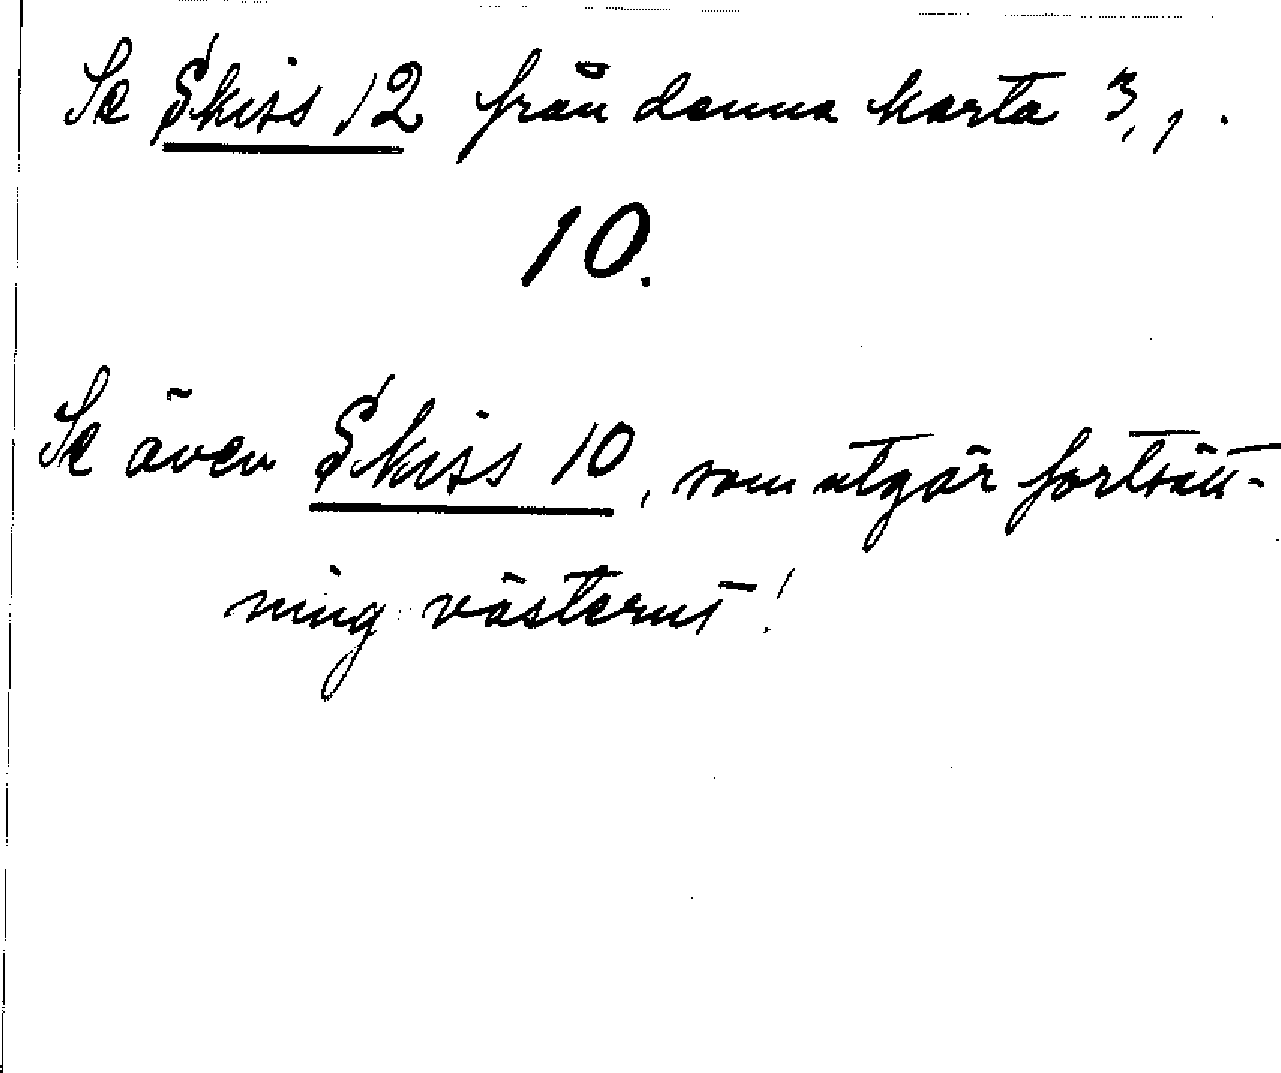 Se Skiss 12 från denna karta 3,1.
10.
Se även Skiss 10, som utgör fortsätt-
ning västerut!